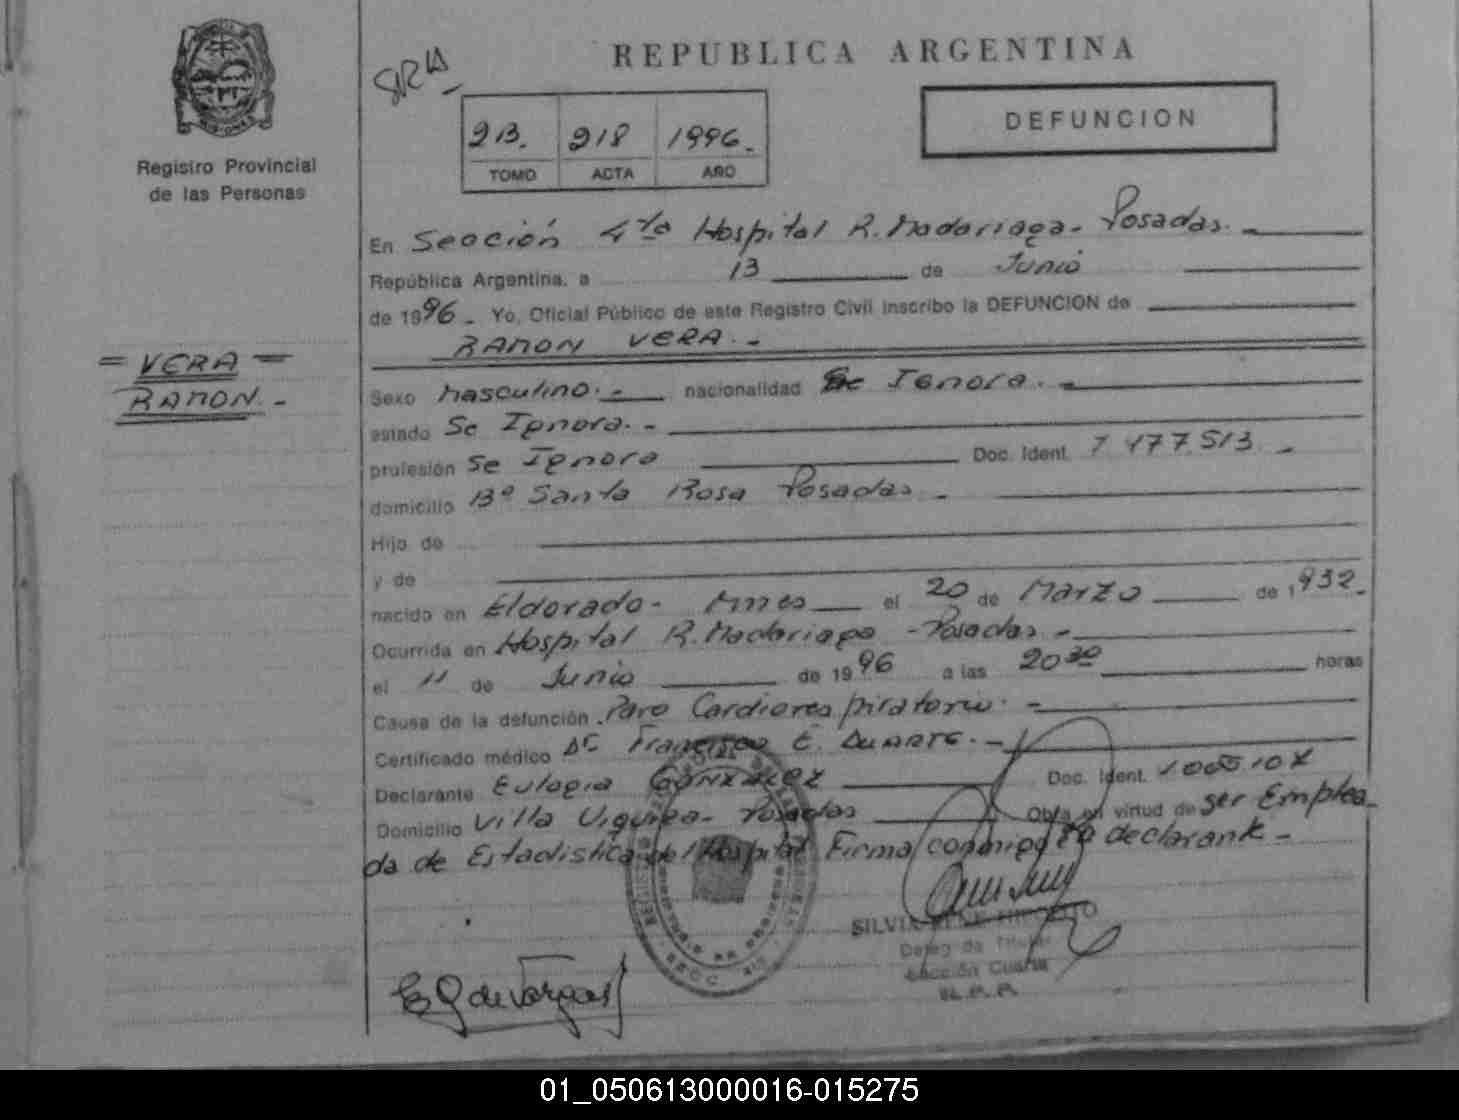 REPUBLICA ARGENTINA
DEFUNCION
MISIONES
Registro Provincial
de las Personas
2B. 218 1996.
TOMO ACTA AÑO
= VERA =
RAMON. -
En Sección 4ta Hospital R. Madariaga - Posadas. -
República Argentina, a 13 de Junio
de 1996 - Yo, Oficial Público de este Registro Civil inscribo la DEFUNCION de
RAMON VERA. -
Sexo Masculino. - nacionalidad Se Ignora. -
estado Se Ignora. -
profesión Se Ignora Doc. Ident. 7.477.513. -
domicilio Bº Santa Rosa Posadas. -
Hijo de
y de
nacido en Eldorado - Mnes el 20 de Marzo de 1932. -
Ocurrida en Hospital R. Madariaga - Posadas. -
el 11 de Junio de 1996 a las 20 30 horas
Causa de la defunción Paro Cardiorespiratorio. -
Certificado médico Dr Francisco E. Duarte. -
Declarante Eulogia GONZALEZ Doc. Ident.
Domicilio Villa Urquiza - Posadas Obra en virtud de ser Emplea-
da de Estadística del Hospital Firma conmigo la declarante -
SILVIA HIPOLITO
Titular
Sección Cuarta
R.P.P.
E G de Vargas
01_050613000016-015275